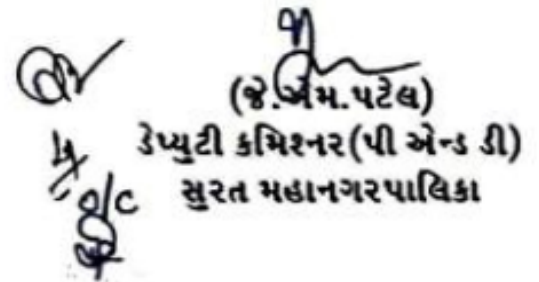 (જે.એમ.પટેલ)
ડેપ્યુટી કમિશ્નર(પી એન્ડ ડી)
સુરત મહાનગરપાલિકા
o/c